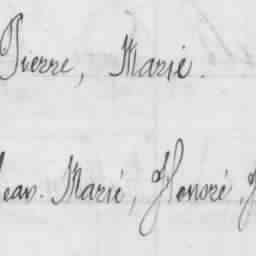 Pierre, Marié.
Jean-Marié, Honoré,